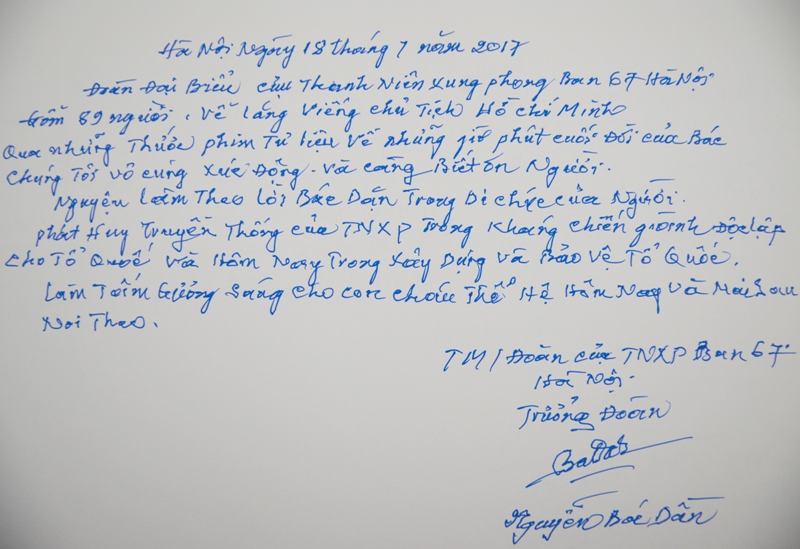 Hà Nội Ngày 18 tháng 7 năm 2017
Đoàn Đại Biểu của Thanh Niên Xung phong Ban 67 Hà Nội
Gồm 89 người. Về lăng Viếng chủ Tịch Hồ chí Minh
Qua những Thước phim Tư liệu Về những giờ phút cuối Đời của Bác
Chúng Tôi vô cùng Xúc Động. và càng Biết ơn Người.
Nguyện làm Theo lời Bác Dặn Trong Di chúc của Người.
phát Huy Truyền Thống của TNXP Trong Kháng chiến giành Độc lập
Cho Tổ Quốc Và Hôm Nay Trong Xây Dựng và Bảo Vệ Tổ Quốc.
Làm Tấm Gương Sáng cho con cháu Thế Hệ Hôm Nay và Mai Sau
Noi Theo.
TM/Đoàn của TNXP Ban 67
Hà Nội.
Trưởng Đoàn
Nguyễn Bá Dẫn